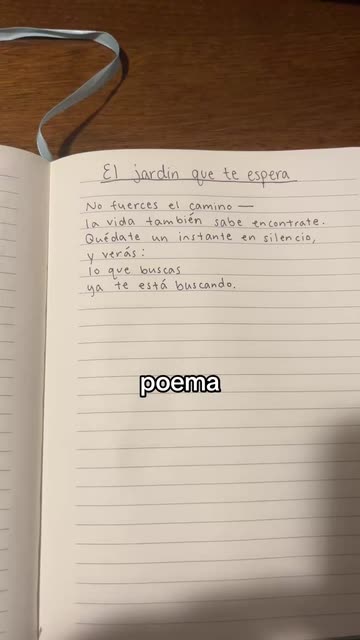 El jardin que te espera
No fuerces el camino —
la vida también sabe encontrate.
Quédate un instante en silencio,
y verás:
lo que buscas
ya te está buscando.
poema